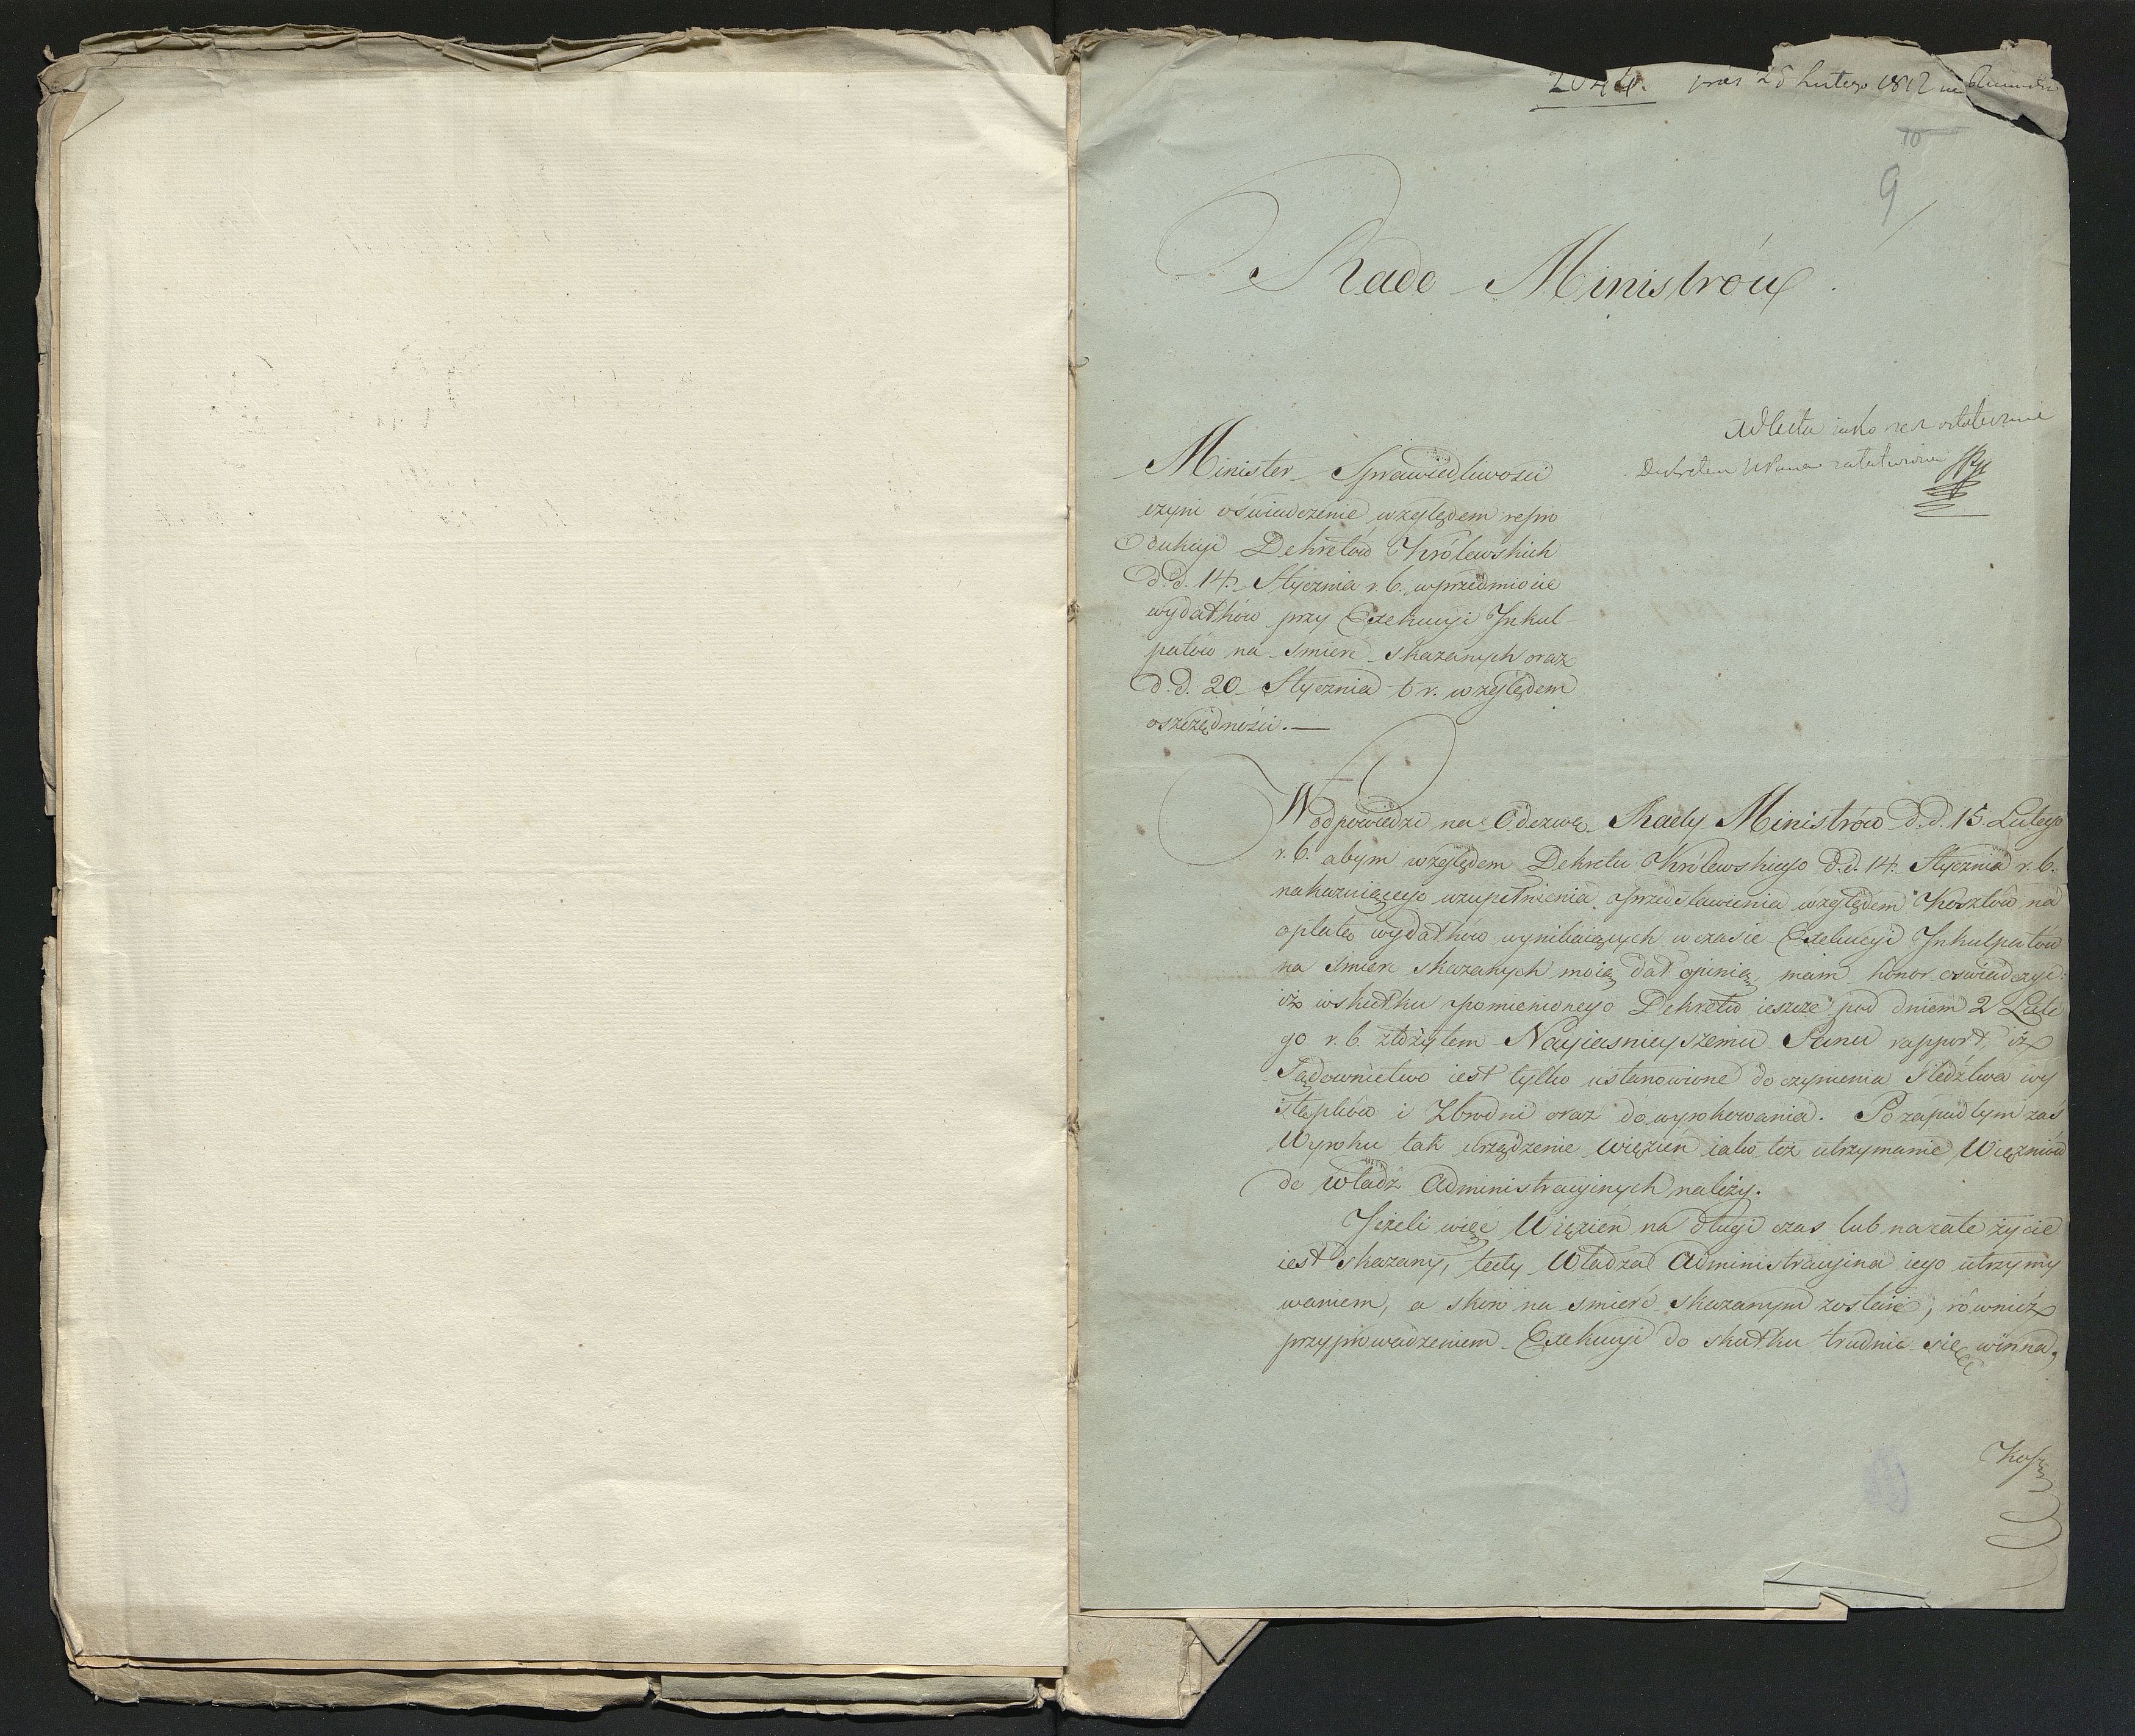 2044. 28 Lutego 1812
10
9
Rada Ministrów
Adlecta iako rez ostatecznie
Dekretem
Minister Sprawiedliwości
czyni oświadczenie względem repro
dukcyi Dekretów Królewskich
d.d. 14. Stycznia r. b. w przedmiocie
wydatków przy Exekucyi Inkul-
patów na śmierć skazanych oraz
d.d. 20 Stycznia t r. względem
oszczędności.—
W odpowiedzi na Odezwę Rady Ministrów d.d. 15. Lutego
r. b. abym względem Dekretu Królewskiego d.d. 14. Stycznia r. b.
nakazuiącego uzupełnienia przedstawienia względem Kosztów na
opłatę wydatków wynikaiących w czasie Exekucyi Inkulpatów
na śmierć skazanych moią dał opinią, mam honor oświadczyć:
iż w skutku pomienionego Dekretu ieszcze pod dniem 2 Lute
go r. b. złożyłem Nayiaśnieyszemu Panu rapport, iż
Sądownictwo iest tylko ustanowione do czynienia śledztwa wy
stępków i Zbrodni oraz do wyrokowania. Po zapadłym zaś
Wyroku tak urządzenie więzień iako też utrzymanie Więźniów
do władz Administracyinych należy.
Jeżeli więc Więzień na długi czas lub na całe życie
iest skazany, tedy Władza Administracyina iego utrzymy
waniem, a skoro na śmierć skazanym zostanie, również
przyprowadzeniem Exekucyi do skutku trudnić się winna,